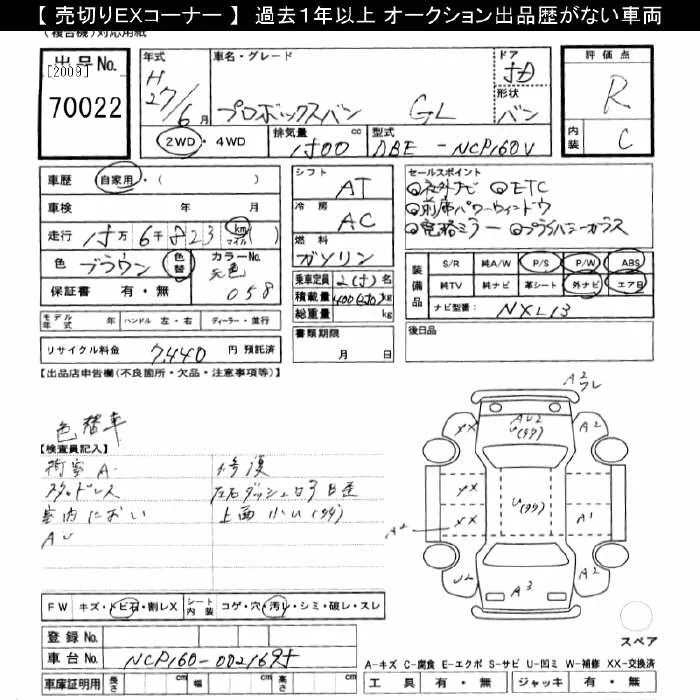 【 売切りEXコーナー 】 過去１年以上 オークション出品歴がない車両
(複合機)対応用紙
出品No.
[2009]
70022
年式
H
27/6月
車名・グレード
プロボックスバン GL
ドア
5D
形状
バン
評価点
R
内装
C
2WD・4WD
排気量
1500
cc
型式
DBE - NCP160V
車歴
自家用・( )
車検 年 月
走行 15万 6千 823 km マイル( )
色 ブラウン
色替
カラーNo.
元色
058
保証書 有・無
シフト
AT
冷房
AC
燃料
ガソリン
乗車定員 2(5)名
積載量 400 kg
総重量 kg
書類期限
月 日
セールスポイント
社外ナビ ETC
前席パワーウィンドウ
電格ミラー プライバシーガラス
装備品
S/R 純A/W P/S P/W ABS
純TV 純ナビ 革シート 外ナビ エア自
ナビ型番: NXL13
モデル年式 年 ハンドル 左・右 ディーラー・並行
後日品
リサイクル料金 7,440 円 預託済
【出品店申告欄(不良箇所・欠品・注意事項等)】
色替車
【検査員記入】
荷室 A・
修復
室内におい
上面 小U(99)
AU
FW キズ・トビ石・割レX
シート内装
コゲ・穴・汚レ・シミ・破レ・スレ
A2
ワレ
AU2
U(99)
XX
A2
YX
U(99)
XX
A2
A1
UL
A3
A2
スペア
登録 No.
車台 No.
NCP160-0021695
車庫証明用
長さ cm
幅 cm
高さ cm
A-キズ C-腐食 E-エクボ S-サビ U-凹ミ W-補修 XX-交換済
工具 有・無 ジャッキ 有・無